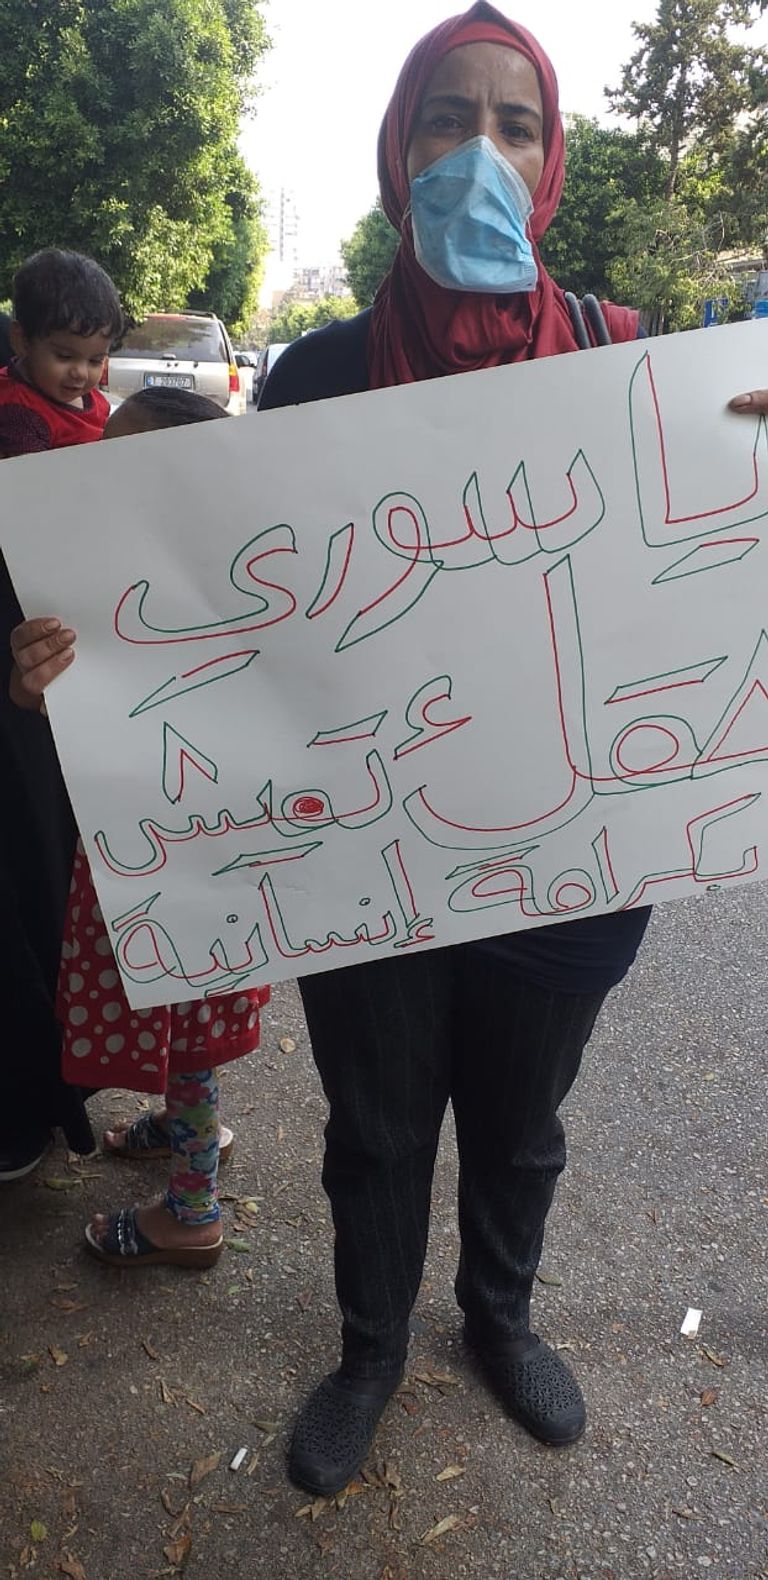 يا سوري
حقك تعيش
بكرامة إنسانية